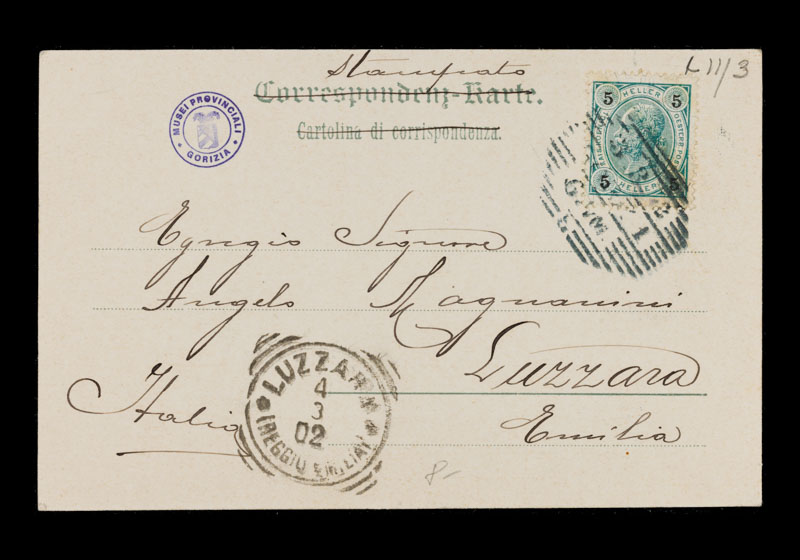 Stampato
L 11/3
Correspondenz-Karte.
Cartolina di corrispondenza.
MUSEI PROVINCIALI
GORIZIA
5 HELLER 5
OESTERR. POST
5 HELLER 5
Egregio Signore
Angelo Magnanini
Luzzara
Italia
Emilia
LUZZARA
4
3
02
(REGGIO EMILIA)
8-